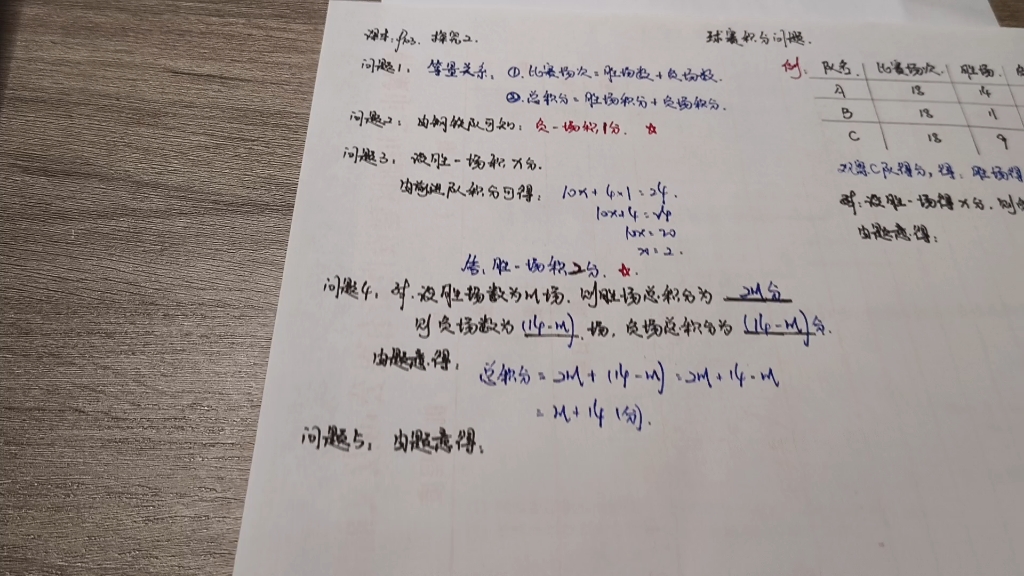 球赛积分问题.
课本 P103. 探究2.
问题1, 等量关系, ①.比赛场次=胜场数+负场数.
②.总积分=胜场积分+负场积分.
问题2, 由钢铁队可知: 负一场积1分. ☆
问题3, 设胜一场积x分.
由前进队积分可得: 10x+4×1=24.
10x+4=24
10x=20
x=2.
答, 胜一场积2分. ☆.
问题4, 解.设胜场数为M场, 则胜场总积分为 2M分
则负场数为(14-M).场, 负场总积分为(14-M)分.
由题意.得,
总积分=2M+(14-M)=2M+14-M
=M+14(分).
问题5, 由题意得:
例, 队名. 比赛场次. 胜场.
A 18 14
B 18 11
C 18 9
观察C队得分, 得, 胜场得
解.设胜一场得x分, 则
由题意得: